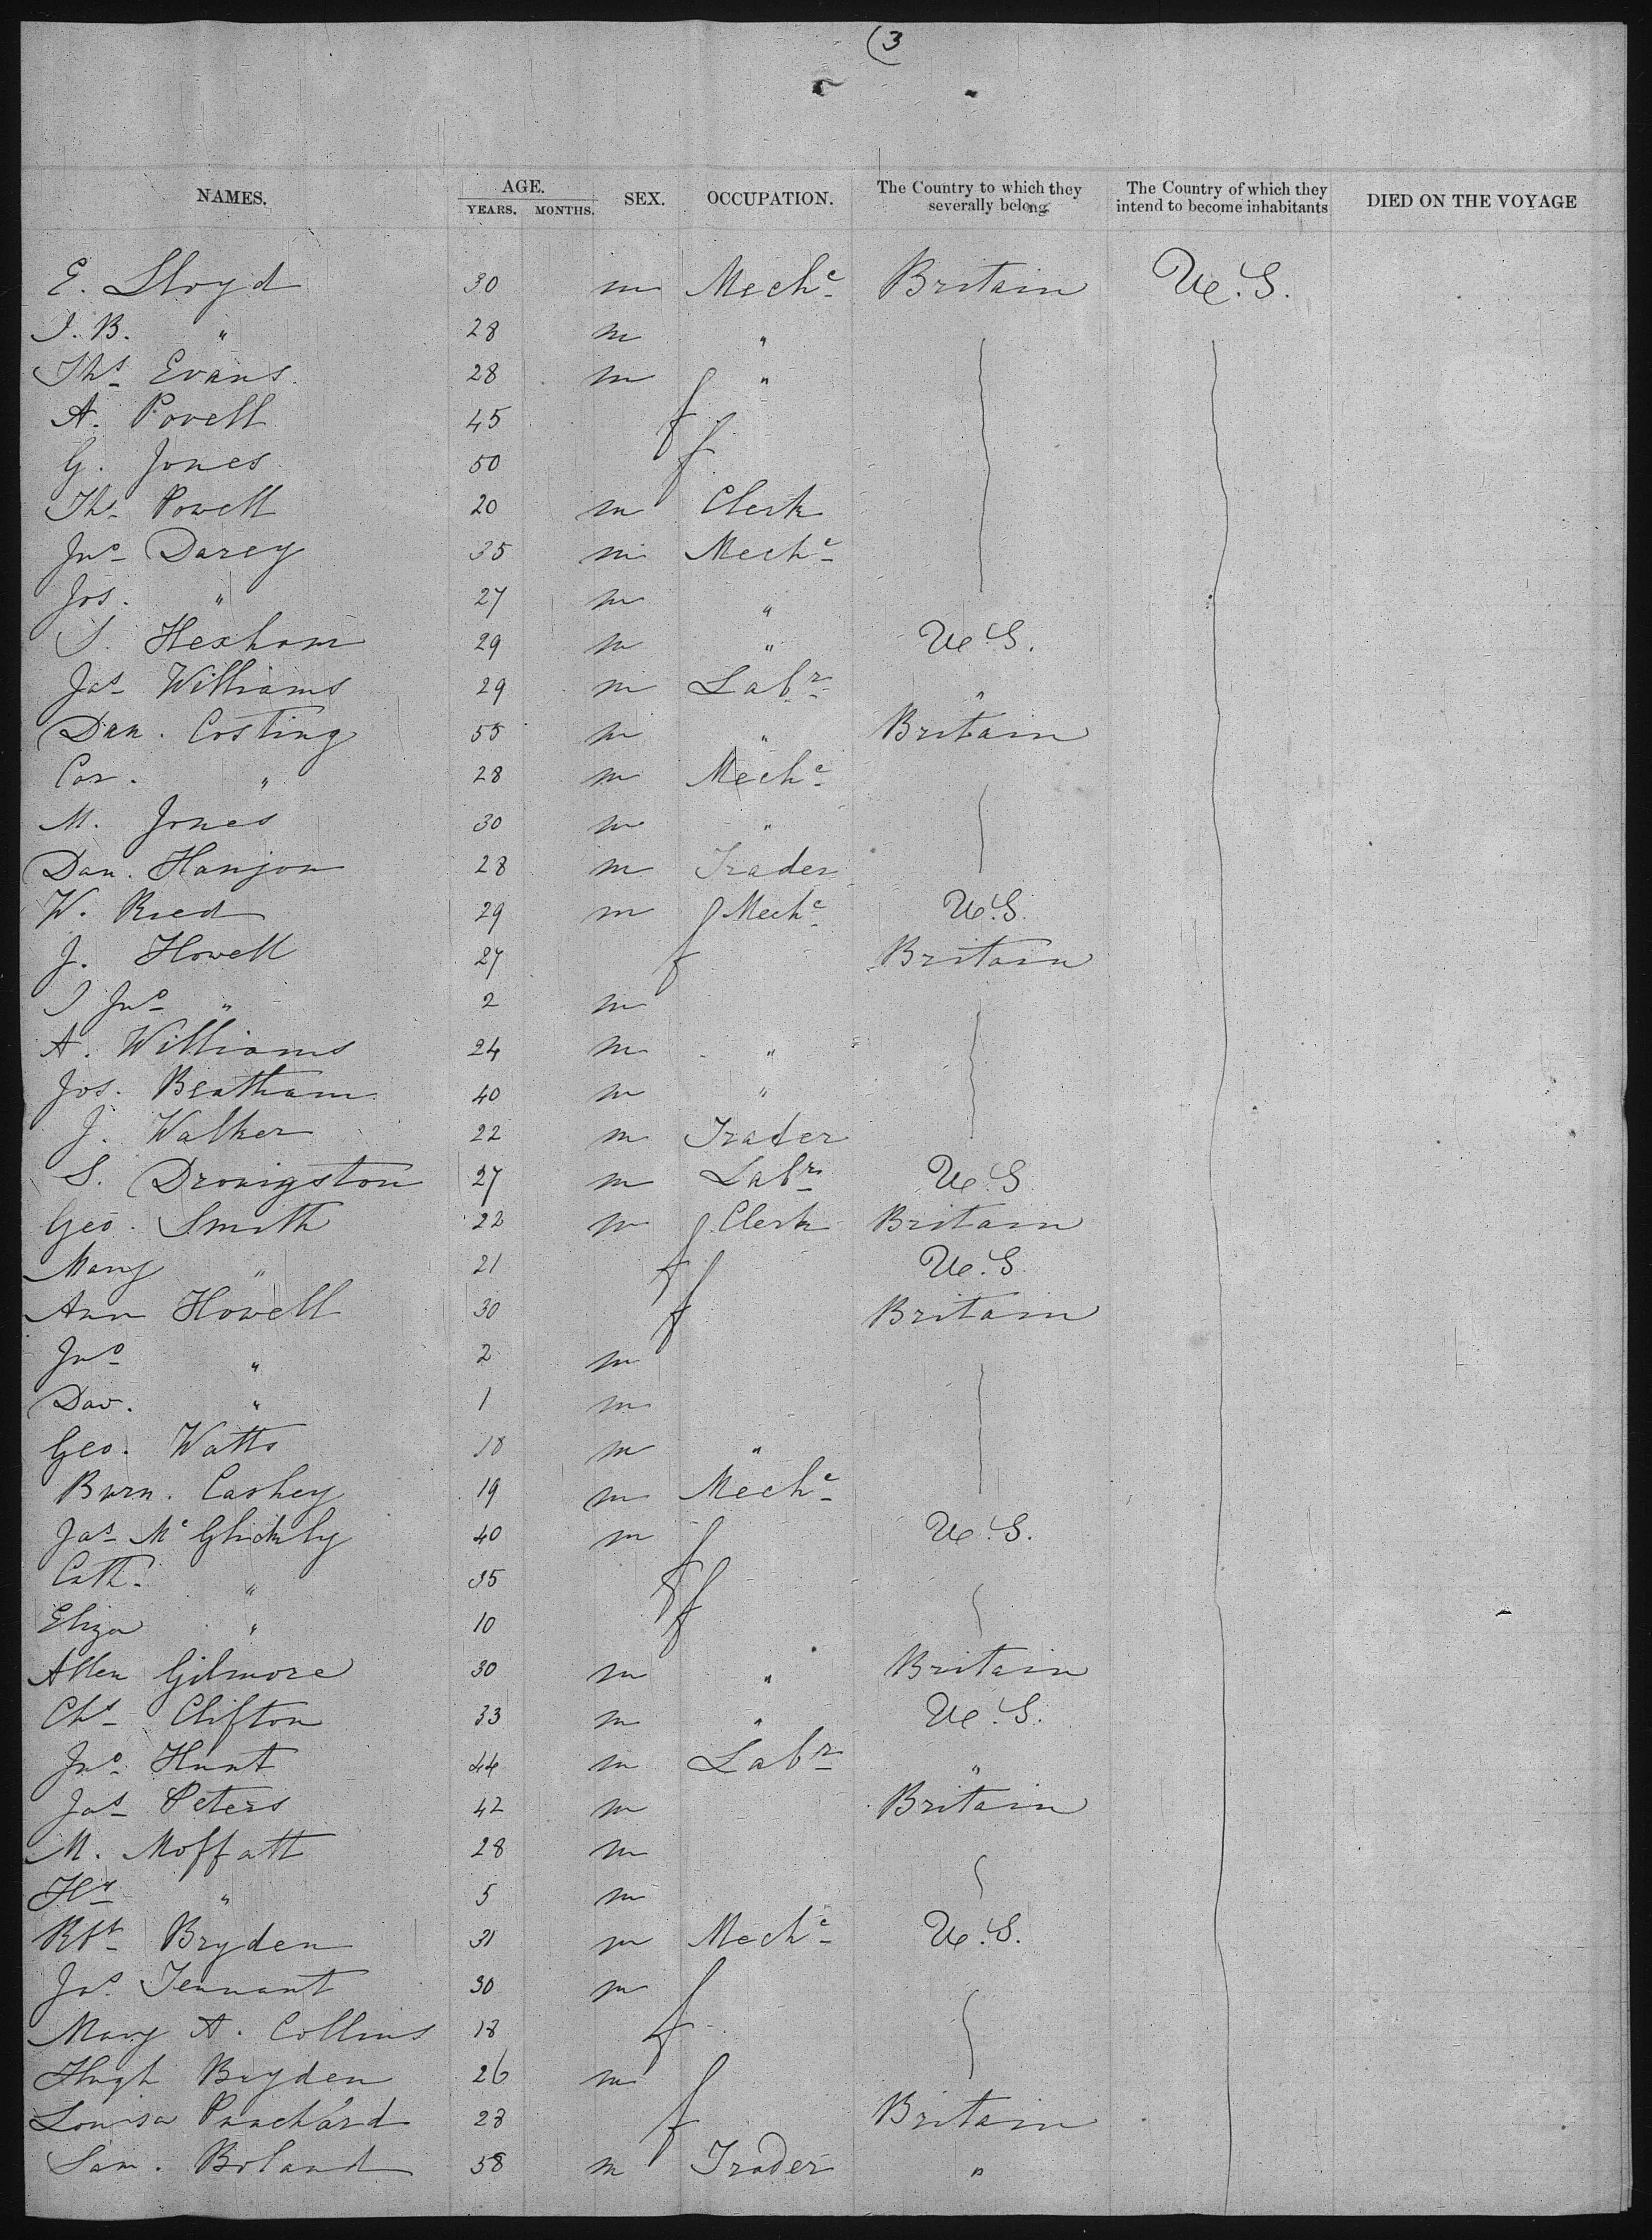 (3
NAMES. AGE. YEARS. MONTHS. SEX. OCCUPATION. The Country to which they severally belong The Country of which they intend to become inhabitants DIED ON THE VOYAGE
E. Lloyd 30 m Mechc Britain U.S.
J. B. " 28 m "
Ths Evans. 28 m "
A. Powell 45 f
G. Jones 50 f
Ths Powell 20 m Clerk
Jno Darcy 35 m Mechc
Jos. " 27 m "
S. Hexham 29 m " U.S.
Jas Williams 29 m Labr "
Dan. Costing 55 m " Britain
Cor. " 28 m Mechc
M. Jones 30 m "
Dan. Hanjon 28 m Trader
W. Ried 29 m Mechc U.S.
J. Howell 27 f Britain
J Jno " 2 m
A. Williams 24 m "
Jos. Beatham 40 m "
J. Walker 22 m Trader
S. 27 m Labr U.S
Geo. Smith 22 m Clerk Britain
Mary " 21 f U.S.
Ann Howell 30 f Britain
Jno " 2 m
Dav. " 1 m
Geo. Watts 18 m "
Barn. Caskey 19 m Mechc
Jas 40 m U.S.
Cath. " 35 f
Eliza " 10 f
Allen Gilmore 30 m " Britain
Chs Clifton 33 m " U.S.
Jno Hunt 44 m Labr "
Jas Peters 42 m Britain
M. Moffatt 28 m
Hy " 5 m
Rbt Bryden 31 m Mechc U.S.
Jas Tennant 30 m
Mary A. Collins 18 f
Hugh Bryden 26 m
Louisa Punchard 28 f Britain
Sam. Boland 58 m Trader "